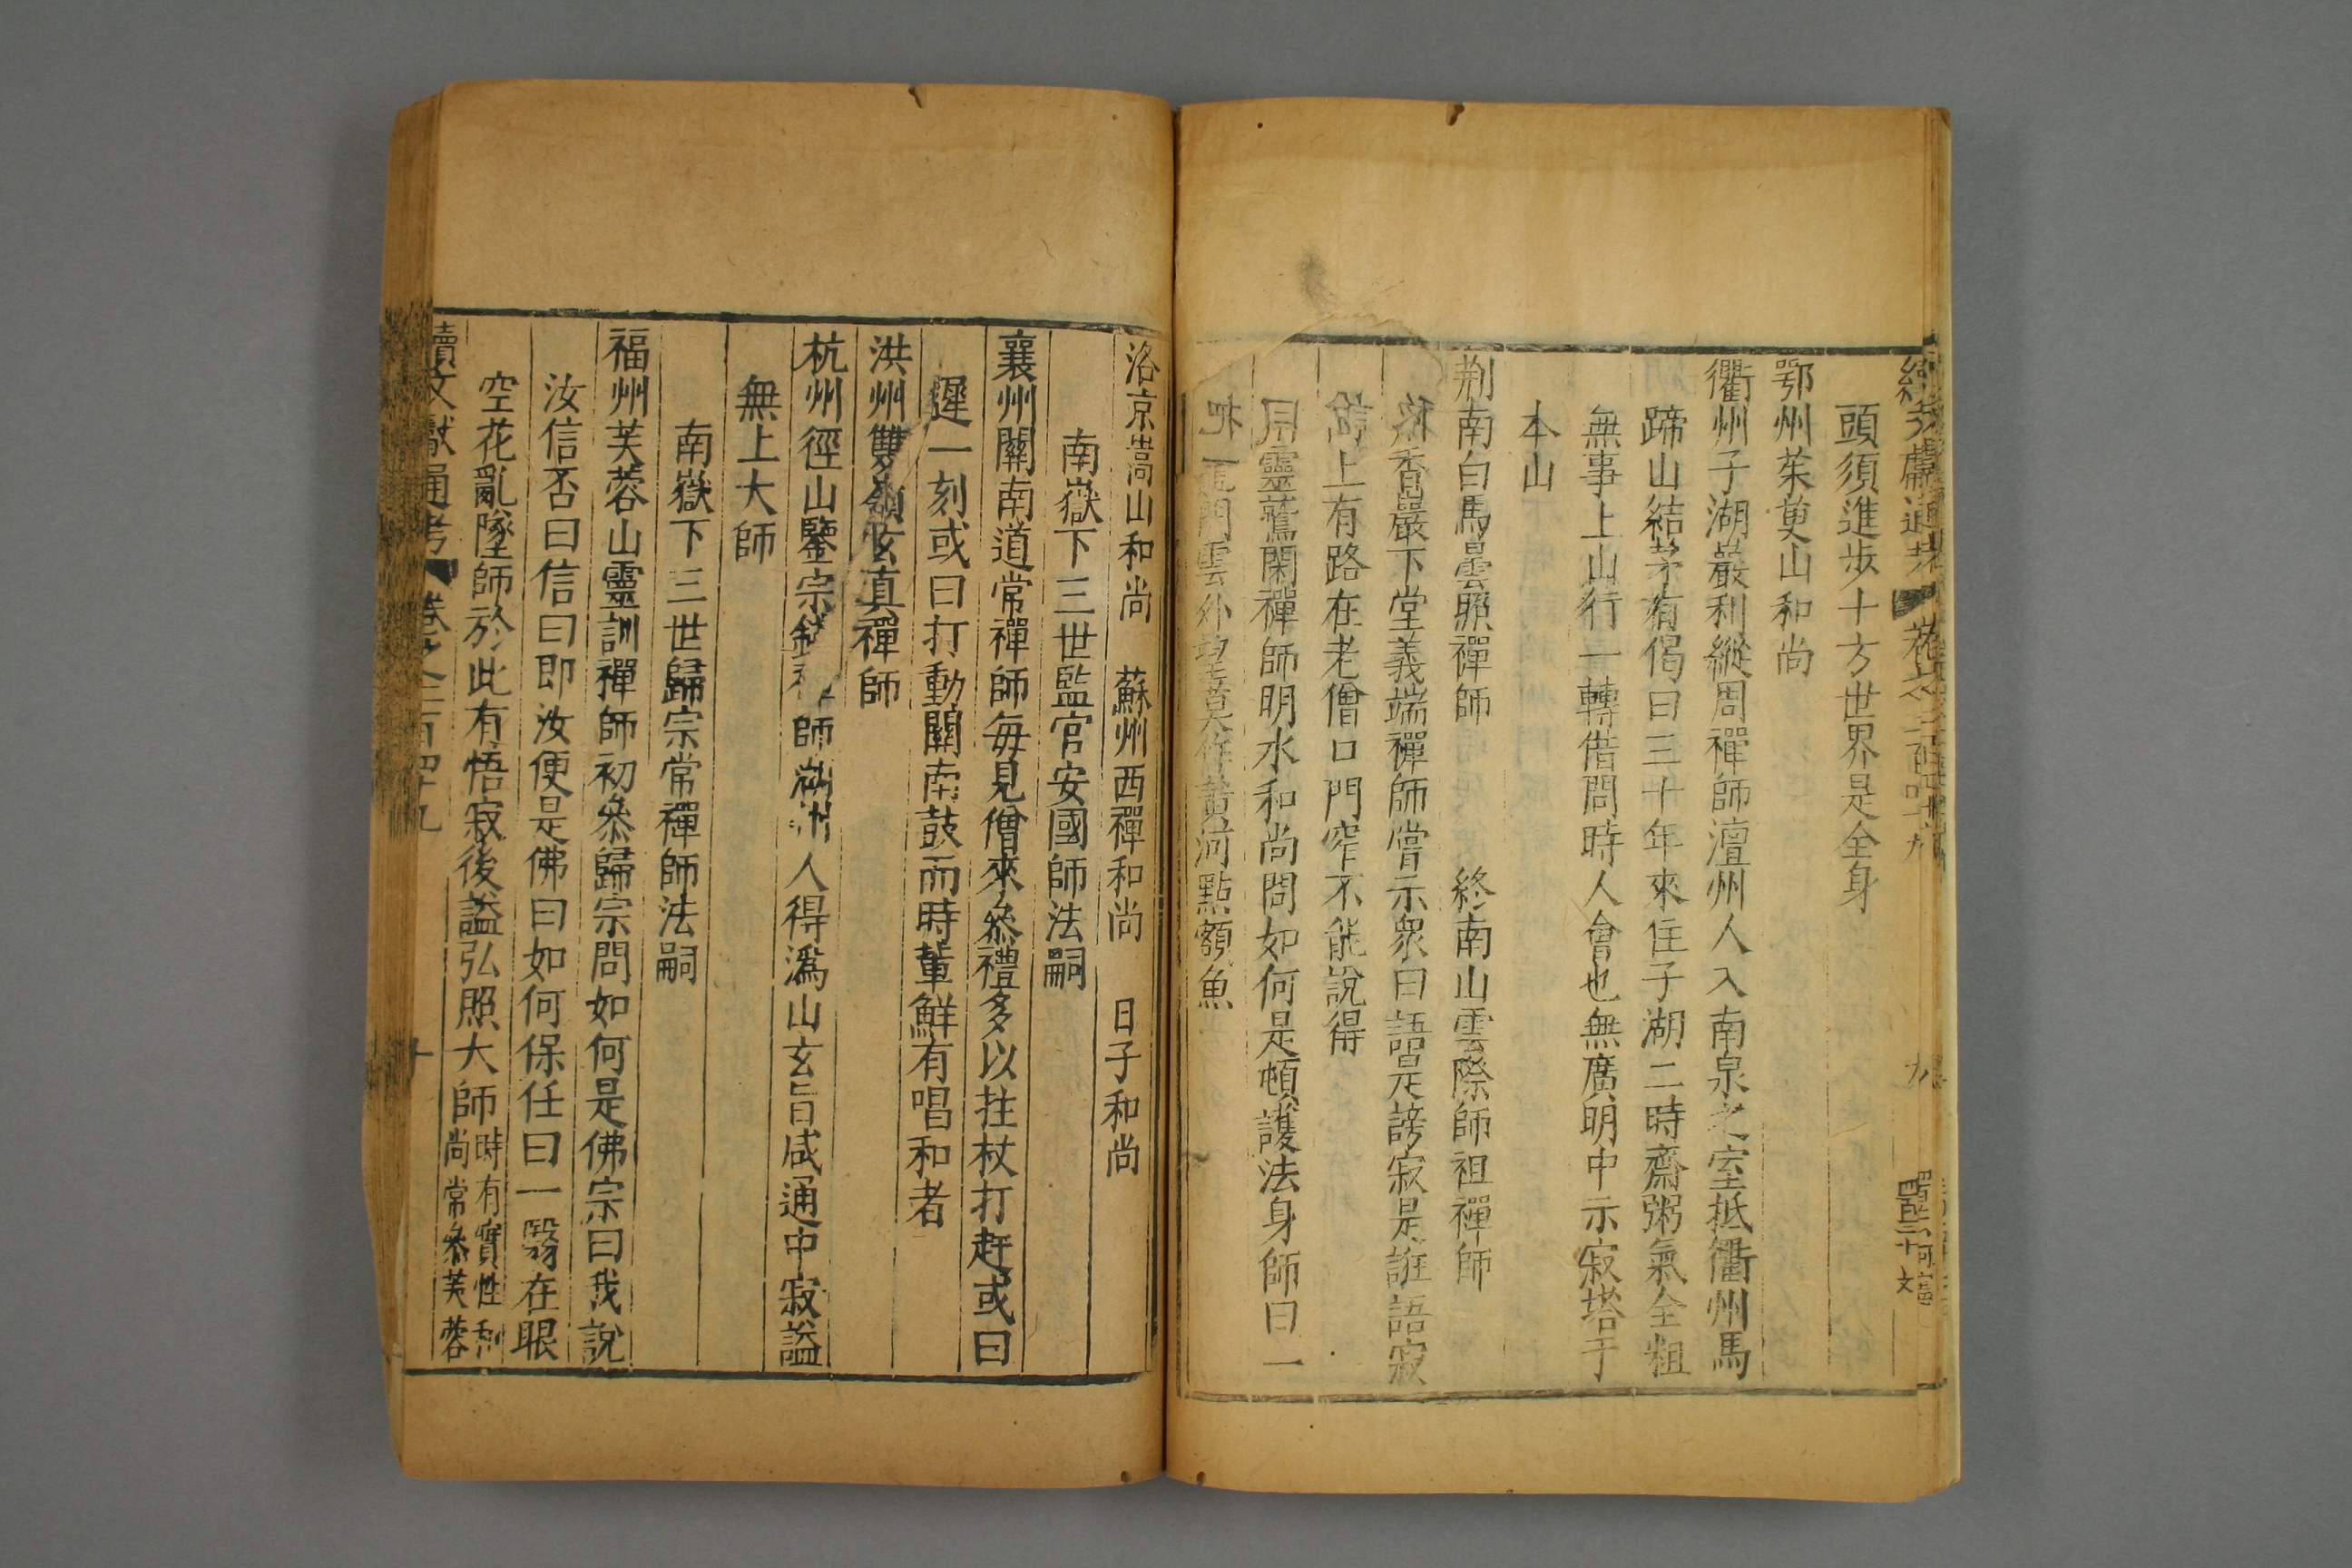 頭須進步十方世界是全身
鄂州茱萸山和尚
衢州子湖巖利縱周禪師澶州人入南泉之室抵衢州馬
蹄山結茅有偈曰三十年來住子湖二時齋粥氣全粗
無事上山行一轉借問時人會也無廣明中示寂塔于
本山
荆南白馬曇照禪師 終南山雲際師祖禪師
香嚴下堂義端禪師嘗示衆曰語是謗寂是誑語寂
上有路在老僧口門窄不能說得
靈鷲閑禪師明水和尚問如何是頓護法身師曰一
門雲外望莫作黄河點額魚
洛京嵩山和尚 蘇州西禪和尚 日子和尚
南嶽下三世監官安國師法嗣
襄州關南道常禪師每見僧來叅禮多以拄杖打赶或曰
遲一刻或曰打動關南鼓而時輩鮮有唱和者
洪州雙嶺玄真禪師
杭州徑山鑒宗師湖州人得潙山玄旨咸通中寂謚
無上大師
南嶽下三世歸宗常禪師法嗣
福州芙蓉山靈訓禪師初叅歸宗問如何是佛宗曰我說
汝信否曰信曰即汝便是佛曰如何保任曰一翳在眼
空花亂墜師於此有悟寂後謚弘照大師時有實性和
尚常叅芙蓉
續文獻通考 卷之二百四十九
十